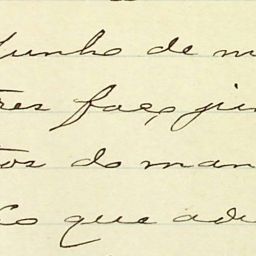 Junho de m
res faz jun
tos do man
que adu